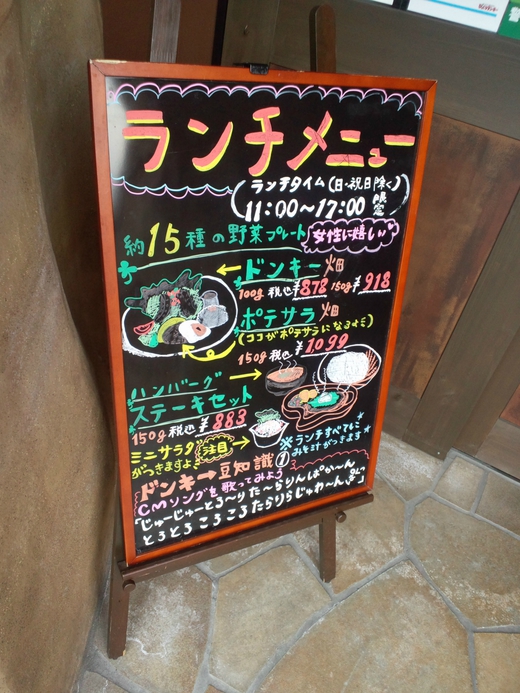 ランチメニュー
ランチタイム(日・祝日除く)
11:00〜17:00 限定
約15種の野菜プレート 女性に嬉しい
ドンキー畑
100g 税込¥878 150g¥918
ポテサラ畑
(ココがポテサラになるよ)
150g 税込¥1,099
ハンバーグ
ステーキセット
150g 税込¥883
ミニサラダ 注目
がつきますよ
※ランチすべてに
みそ汁がつきます
ドンキー豆知識①
CMソングを歌ってみよう
「じゅーじゅーとろ〜りた〜らりんぱか〜ん
とろとろころころたらりらじゅわ〜ん」